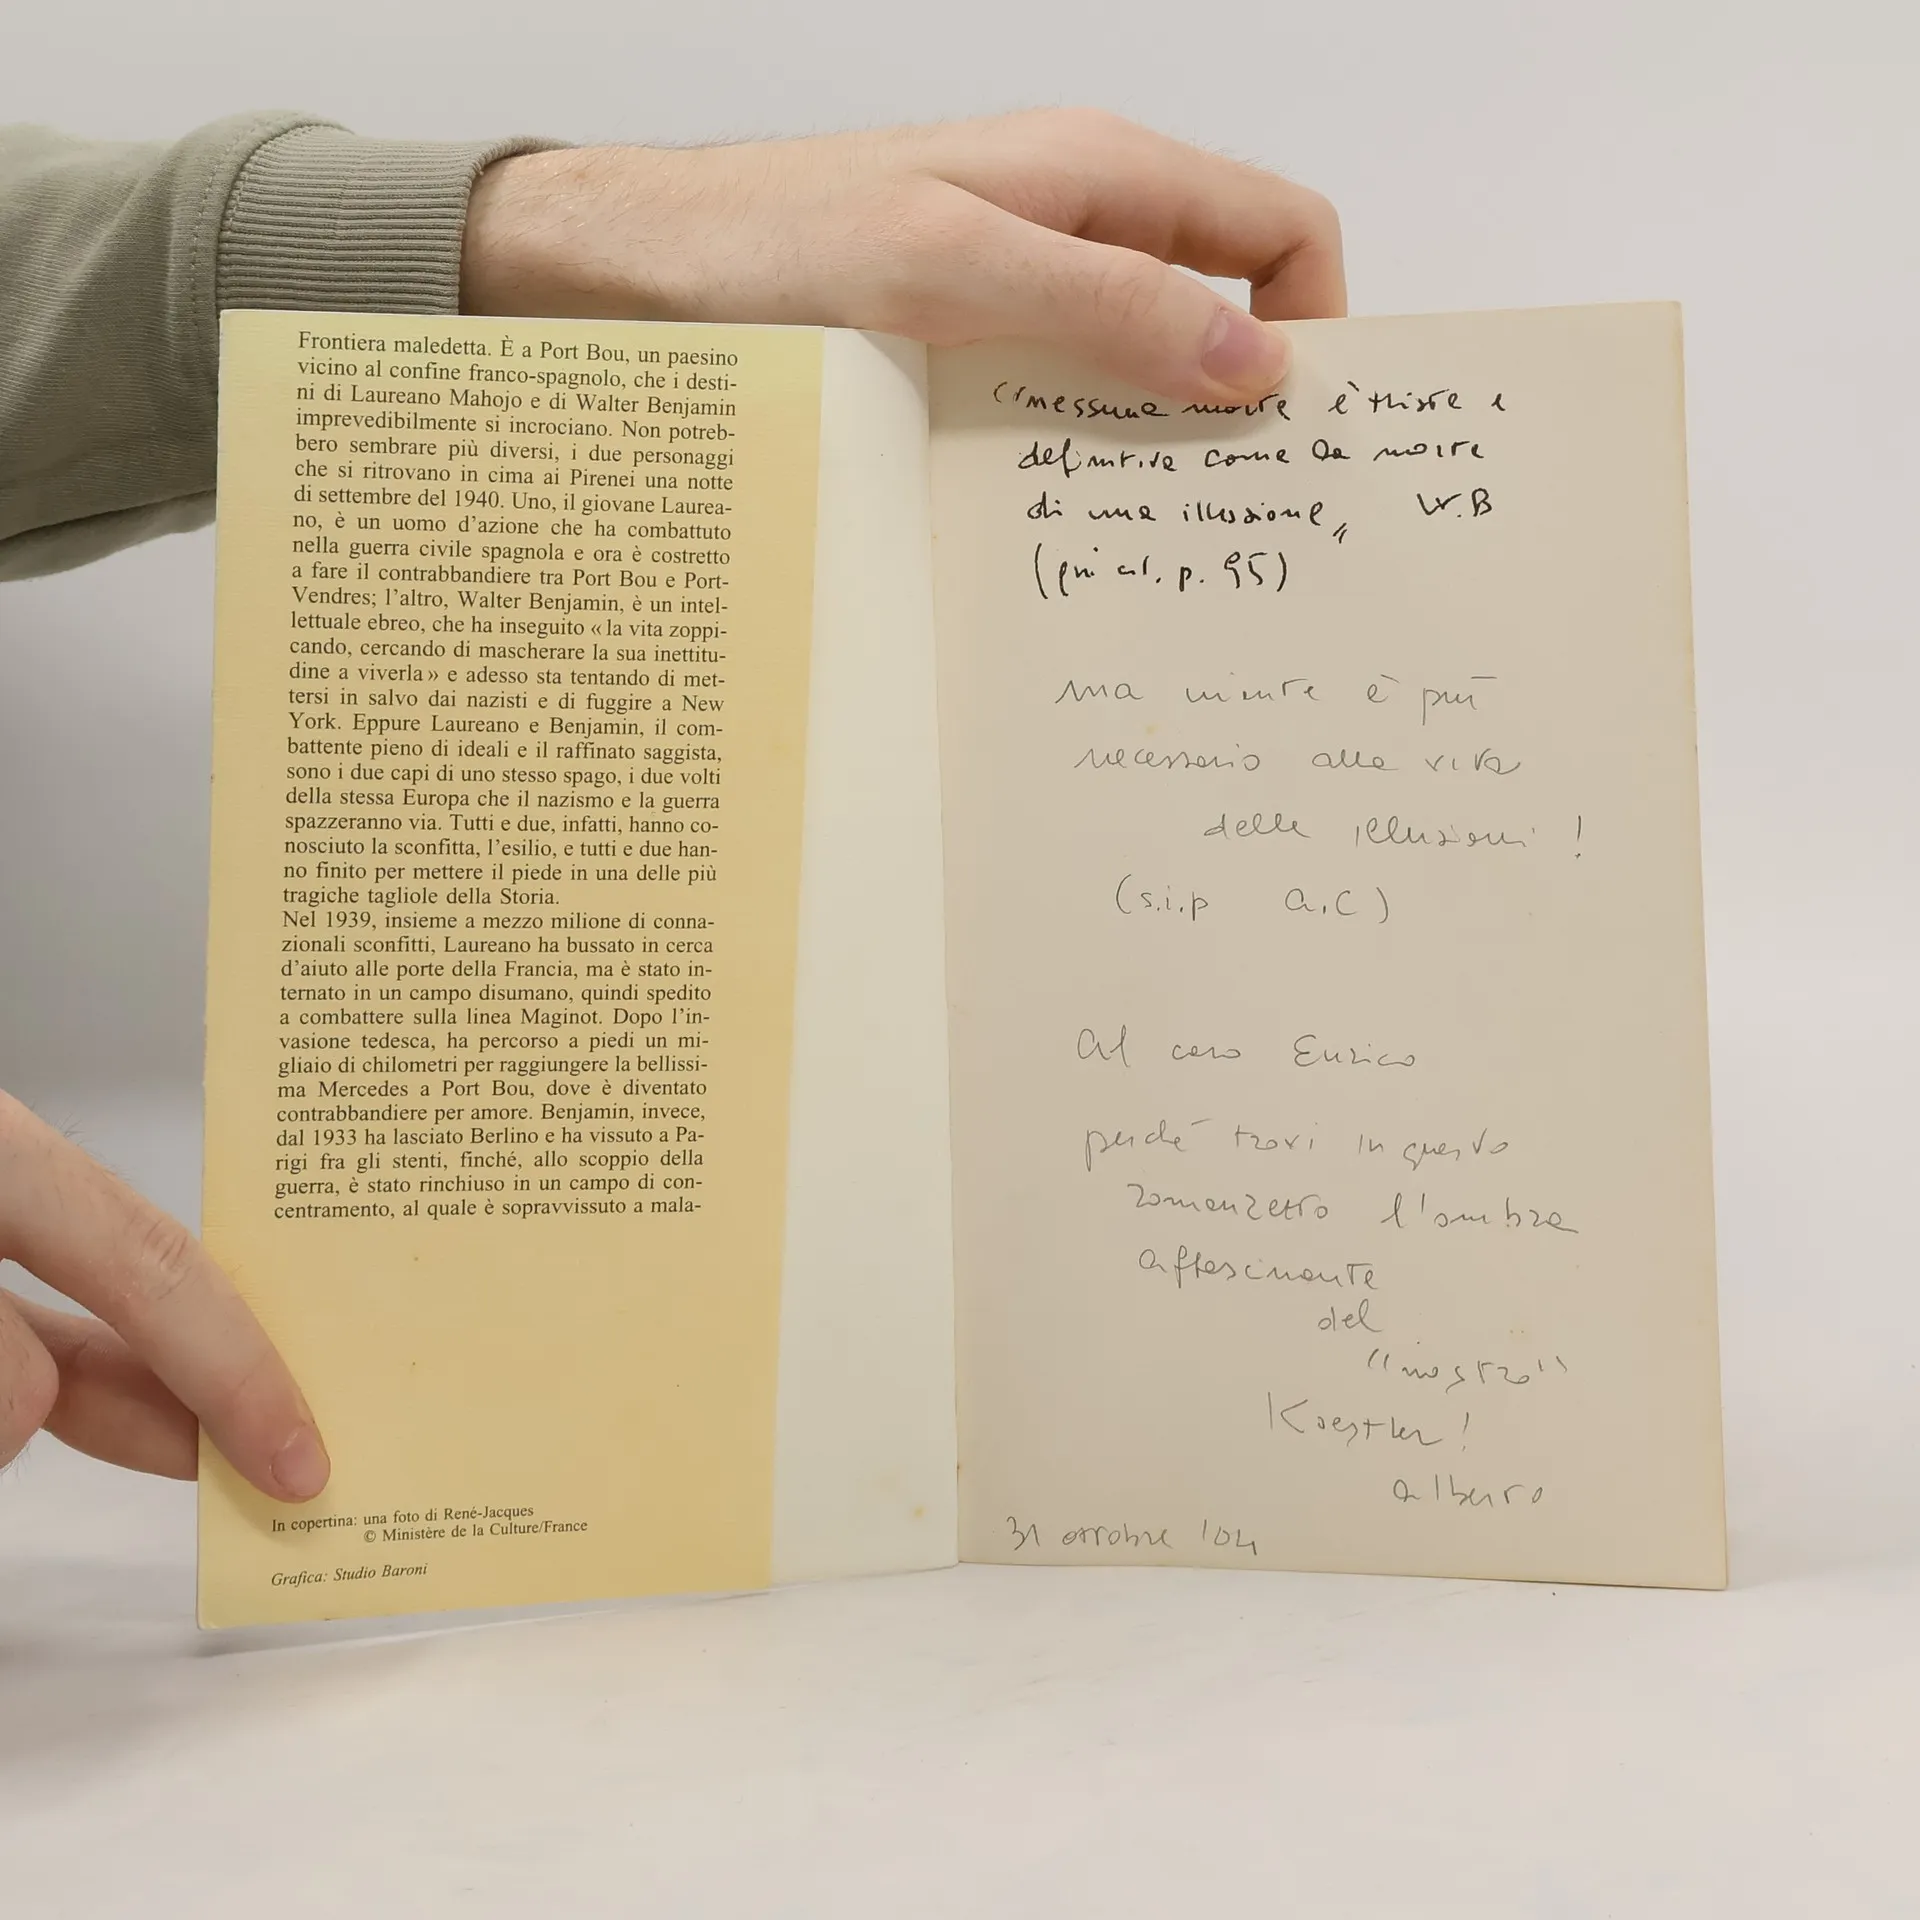 Frontiera maledetta. È a Port Bou, un paesino
vicino al confine franco-spagnolo, che i desti-
ni di Laureano Mahojo e di Walter Benjamin
imprevedibilmente si incrociano. Non potreb-
bero sembrare più diversi, i due personaggi
che si ritrovano in cima ai Pirenei una notte
di settembre del 1940. Uno, il giovane Laurea-
no, è un uomo d'azione che ha combattuto
nella guerra civile spagnola e ora è costretto
a fare il contrabbandiere tra Port Bou e Port-
Vendres; l'altro, Walter Benjamin, è un intel-
lettuale ebreo, che ha inseguito « la vita zoppi-
cando, cercando di mascherare la sua inettitu-
dine a viverla » e adesso sta tentando di met-
tersi in salvo dai nazisti e di fuggire a New
York. Eppure Laureano e Benjamin, il com-
battente pieno di ideali e il raffinato saggista,
sono i due capi di uno stesso spago, i due volti
della stessa Europa che il nazismo e la guerra
spazzeranno via. Tutti e due, infatti, hanno co-
nosciuto la sconfitta, l'esilio, e tutti e due han-
no finito per mettere il piede in una delle più
tragiche tagliole della Storia.
Nel 1939, insieme a mezzo milione di conna-
zionali sconfitti, Laureano ha bussato in cerca
d'aiuto alle porte della Francia, ma è stato in-
ternato in un campo disumano, quindi spedito
a combattere sulla linea Maginot. Dopo l'in-
vasione tedesca, ha percorso a piedi un mi-
gliaio di chilometri per raggiungere la bellissi-
ma Mercedes a Port Bou, dove è diventato
contrabbandiere per amore. Benjamin, invece,
dal 1933 ha lasciato Berlino e ha vissuto a Pa-
rigi fra gli stenti, finché, allo scoppio della
guerra, è stato rinchiuso in un campo di con-
centramento, al quale è sopravvissuto a mala-
In copertina: una foto di René-Jacques
© Ministère de la Culture/France
Grafica: Studio Baroni
"nessuna morte è triste e
definitiva come la morte
di una illusione„ W.B
(qui cit. p. 95)
ma niente è più
necessario alla vita
delle illusioni!
(s.i.p a.C)
Al caro Enrico
perché trovi in questo
romanzetto l'ombra
affascinante
del
"nostro"
Koestler!
alberto
31 ottobre '04